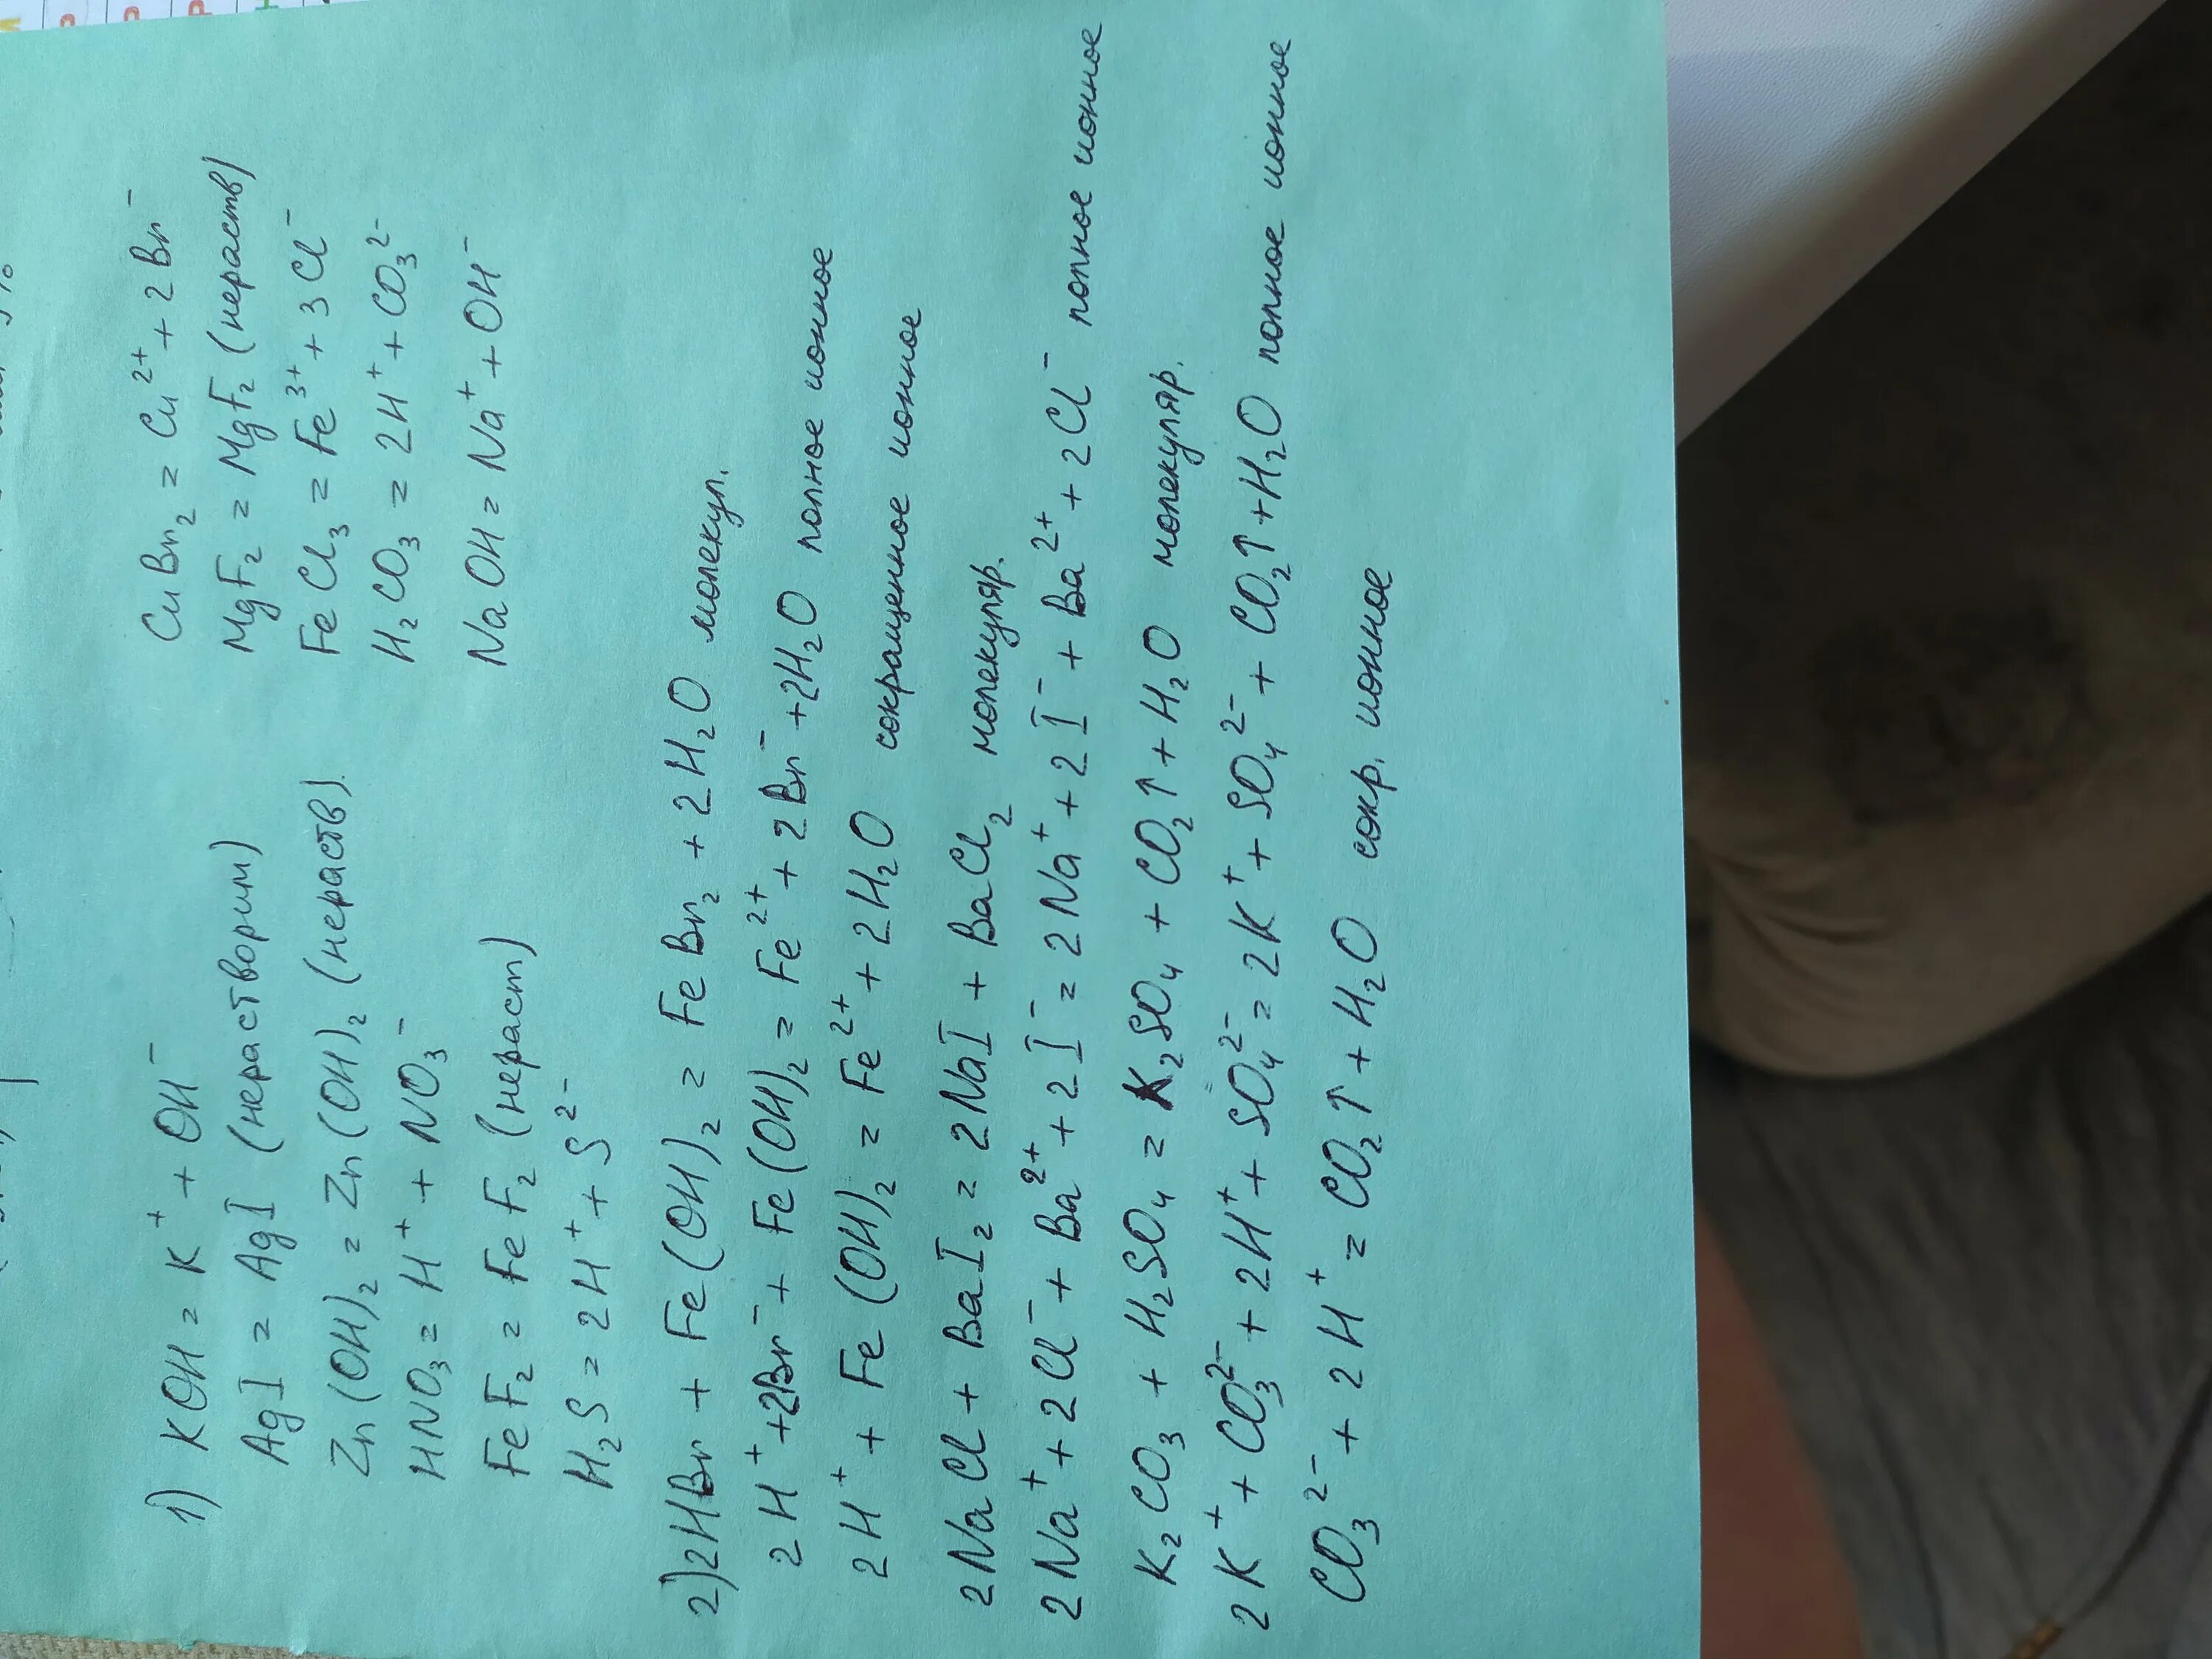 1) KOH = K⁺ + OH⁻
AgI = AgI (нерастворим)
Zn(OH)₂ = Zn(OH)₂ (нераств).
HNO₃ = H⁺ + NO₃⁻
FeF₂ = FeF₂ (нераст)
H₂S = 2H⁺ + S²⁻
CuBr₂ = Cu²⁺ + 2Br⁻
MgF₂ = MgF₂ (нераств)
FeCl₃ = Fe³⁺ + 3Cl⁻
H₂CO₃ = 2H⁺ + CO₃²⁻
NaOH = Na⁺ + OH⁻
2) 2HBr + Fe(OH)₂ = FeBr₂ + 2H₂O молекул.
2H⁺ + 2Br⁻ + Fe(OH)₂ = Fe²⁺ + 2Br⁻ + 2H₂O полное ионное
2H⁺ + Fe(OH)₂ = Fe²⁺ + 2H₂O сокращенное ионное
2NaCl + BaI₂ = 2NaI + BaCl₂ молекуляр.
2Na⁺ + 2Cl⁻ + Ba²⁺ + 2I⁻ = 2Na⁺ + 2I⁻ + Ba²⁺ + 2Cl⁻ полное ионное
K₂CO₃ + H₂SO₄ = K₂SO₄ + CO₂↑ + H₂O молекуляр.
2K⁺ + CO₃²⁻ + 2H⁺ + SO₄²⁻ = 2K⁺ + SO₄²⁻ + CO₂↑ + H₂O полное ионное
CO₃²⁻ + 2H⁺ = CO₂↑ + H₂O сокр. ионное